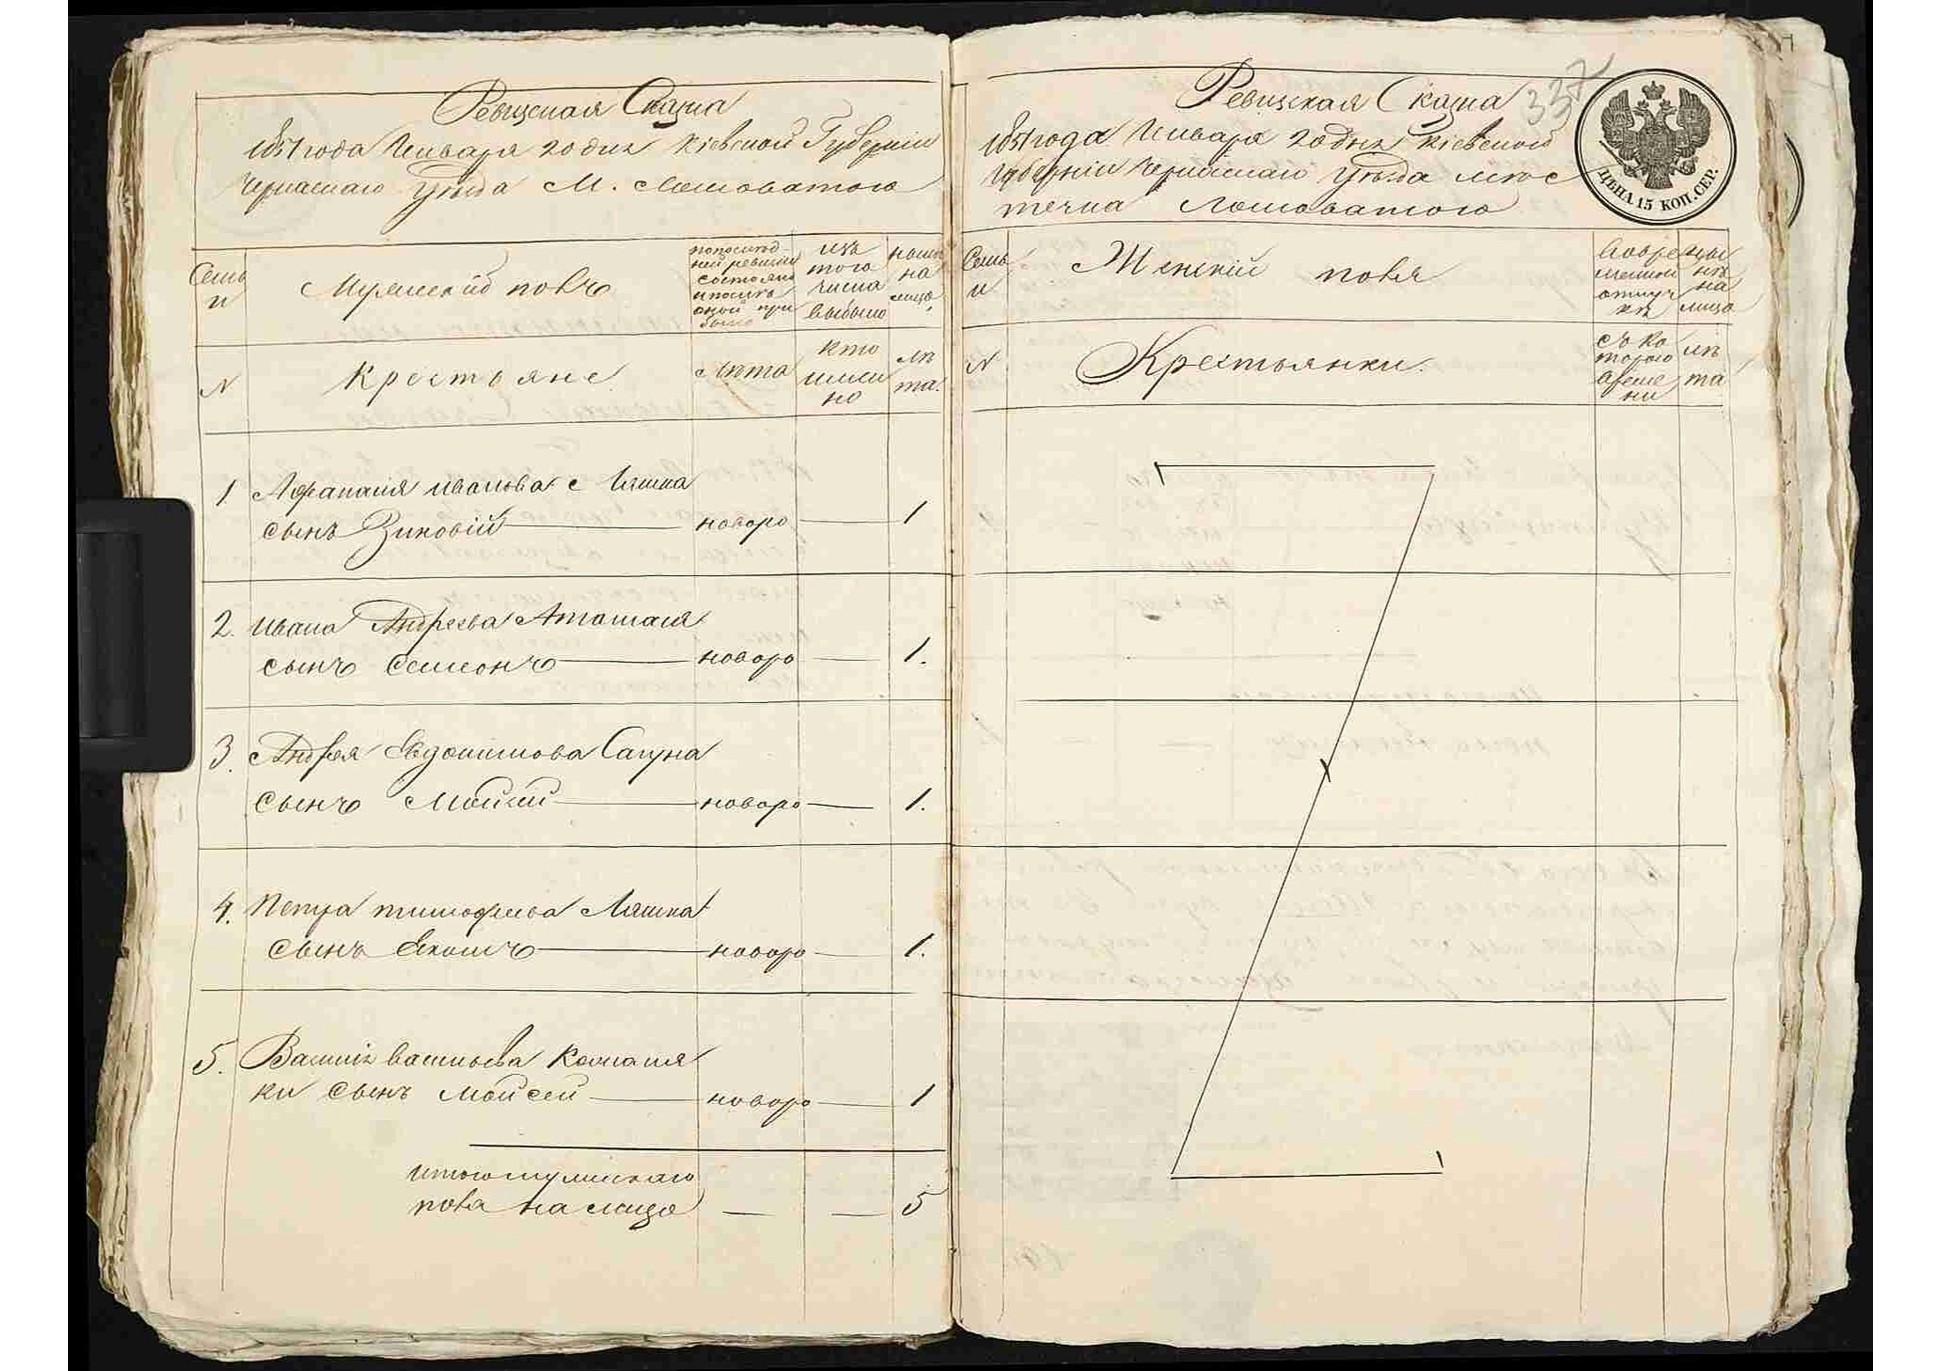 Ревизская Сказка
1851 года Января 20 дня Кіевской Губерніи
Черкаскаго Уѣзда М. Ломоватого
Семьи
Мужескій полъ
по последней ревизіи состояло и после оной прибыло
изъ того числа выбыло
ныне на лицо
N
Крестьяне
Лѣта
кто имянно
лѣта
1 Афанасія Иванова Ляшка
сынъ Зиновій новоро 1
2. Ивана Андреева
сынъ Семионъ новоро 1.
3. Андрея Евдокимова Сагуна
сынъ Мойсей новоро 1.
4. Петра Тимофеева Ляшка
сынъ Екимъ новоро 1.
5. Василія Васильева
ки сынъ Мойсей новоро 1
итого мужескаго
пола на лицо 5
Ревизская Сказка
337
1851 года Января 20 дня Кіевской
Губерніи Черкаскаго Уѣзда мѣс
течка Ломоватого
ЦѢНА 15 КОП. СЕР.
Семьи
Женскій пола
во временной отлучкѣ
ны нѣ на лицо
N
Крестьянки.
съ ко торого време ни
лѣ та